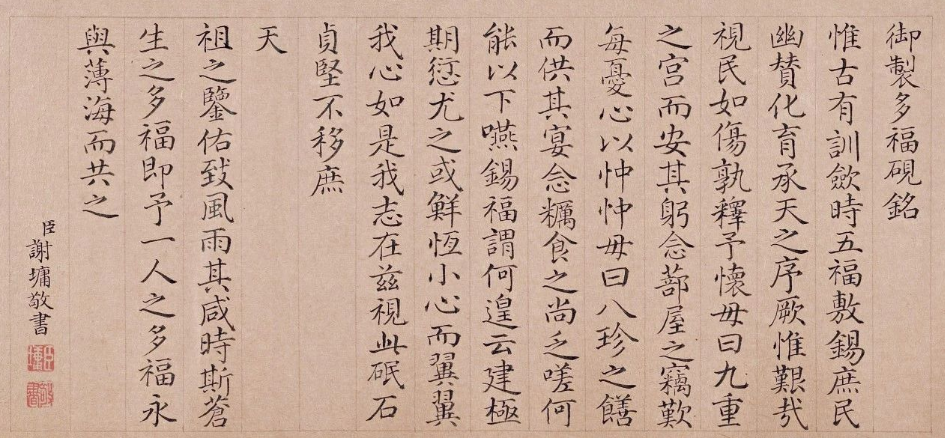 御製多福硯銘
惟古有訓斂時五福敷錫庶民
幽贊化育承天之序厥惟艱㢤
視民如傷孰釋予懷毋曰九重
之宫而安其躬念蔀屋之竊歎
每憂心以忡忡毋曰八珍之饍
而供其宴念糲食之尚乏嗟何
能以下嚥錫福謂何遑云建極
期愆尤之或鮮恆小心而翼翼
我心如是我志在兹視此硯石
貞堅不移庶
天
祖之鑒佑致風雨其咸時斯蒼
生之多福即予一人之多福永
與薄海而共之
臣謝墉敬書
臣墉
敬書